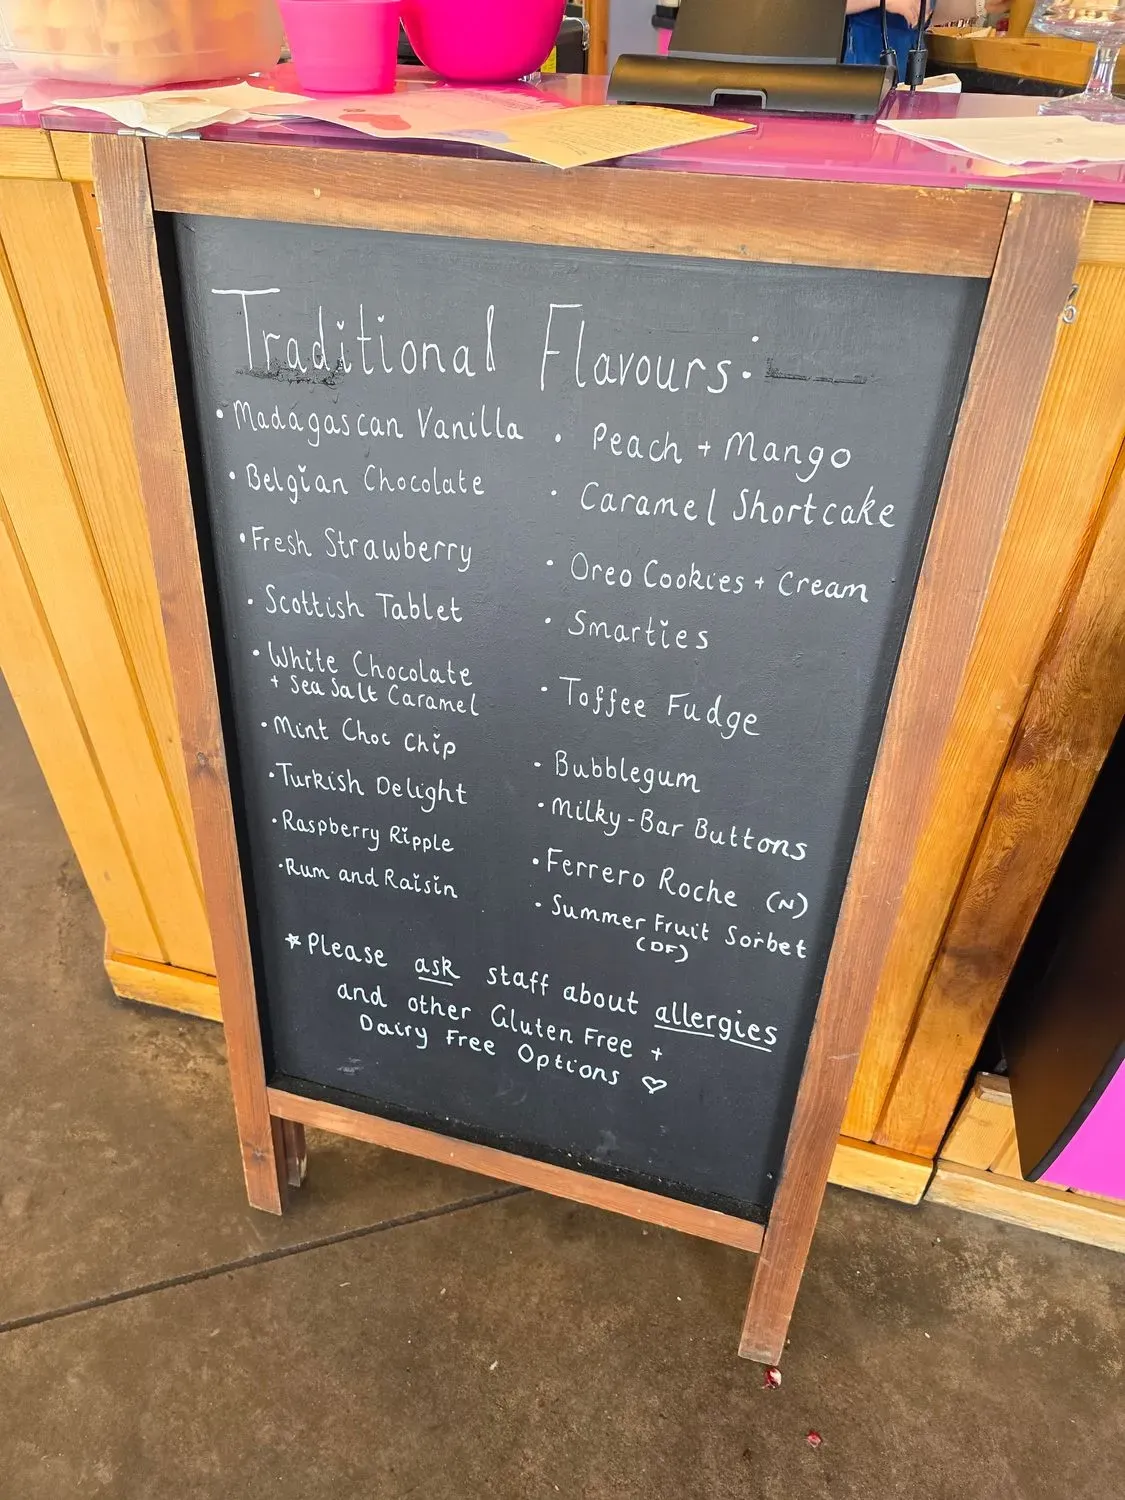 Traditional Flavours:
• Madagascan Vanilla
• Belgian Chocolate
• Fresh Strawberry
• Scottish Tablet
• White Chocolate
+ Sea Salt Caramel
• Mint Choc Chip
• Turkish Delight
• Raspberry Ripple
• Rum and Raisin
• Peach + Mango
• Caramel Shortcake
• Oreo Cookies + Cream
• Smarties
• Toffee Fudge
• Bubblegum
• Milky-Bar Buttons
• Ferrero Roche (N)
• Summer Fruit Sorbet
(DF)
* Please ask staff about allergies
and other Gluten Free +
Dairy Free Options ♡